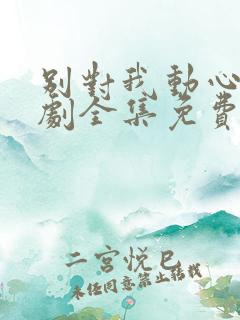 別對我動心
劇全集免費
二宮悅巳
未经同意禁止转载